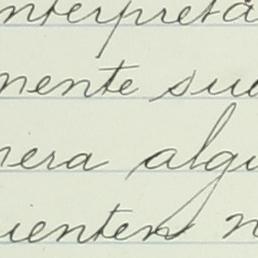 nterpreta
mente sue
nera algu
uenten n